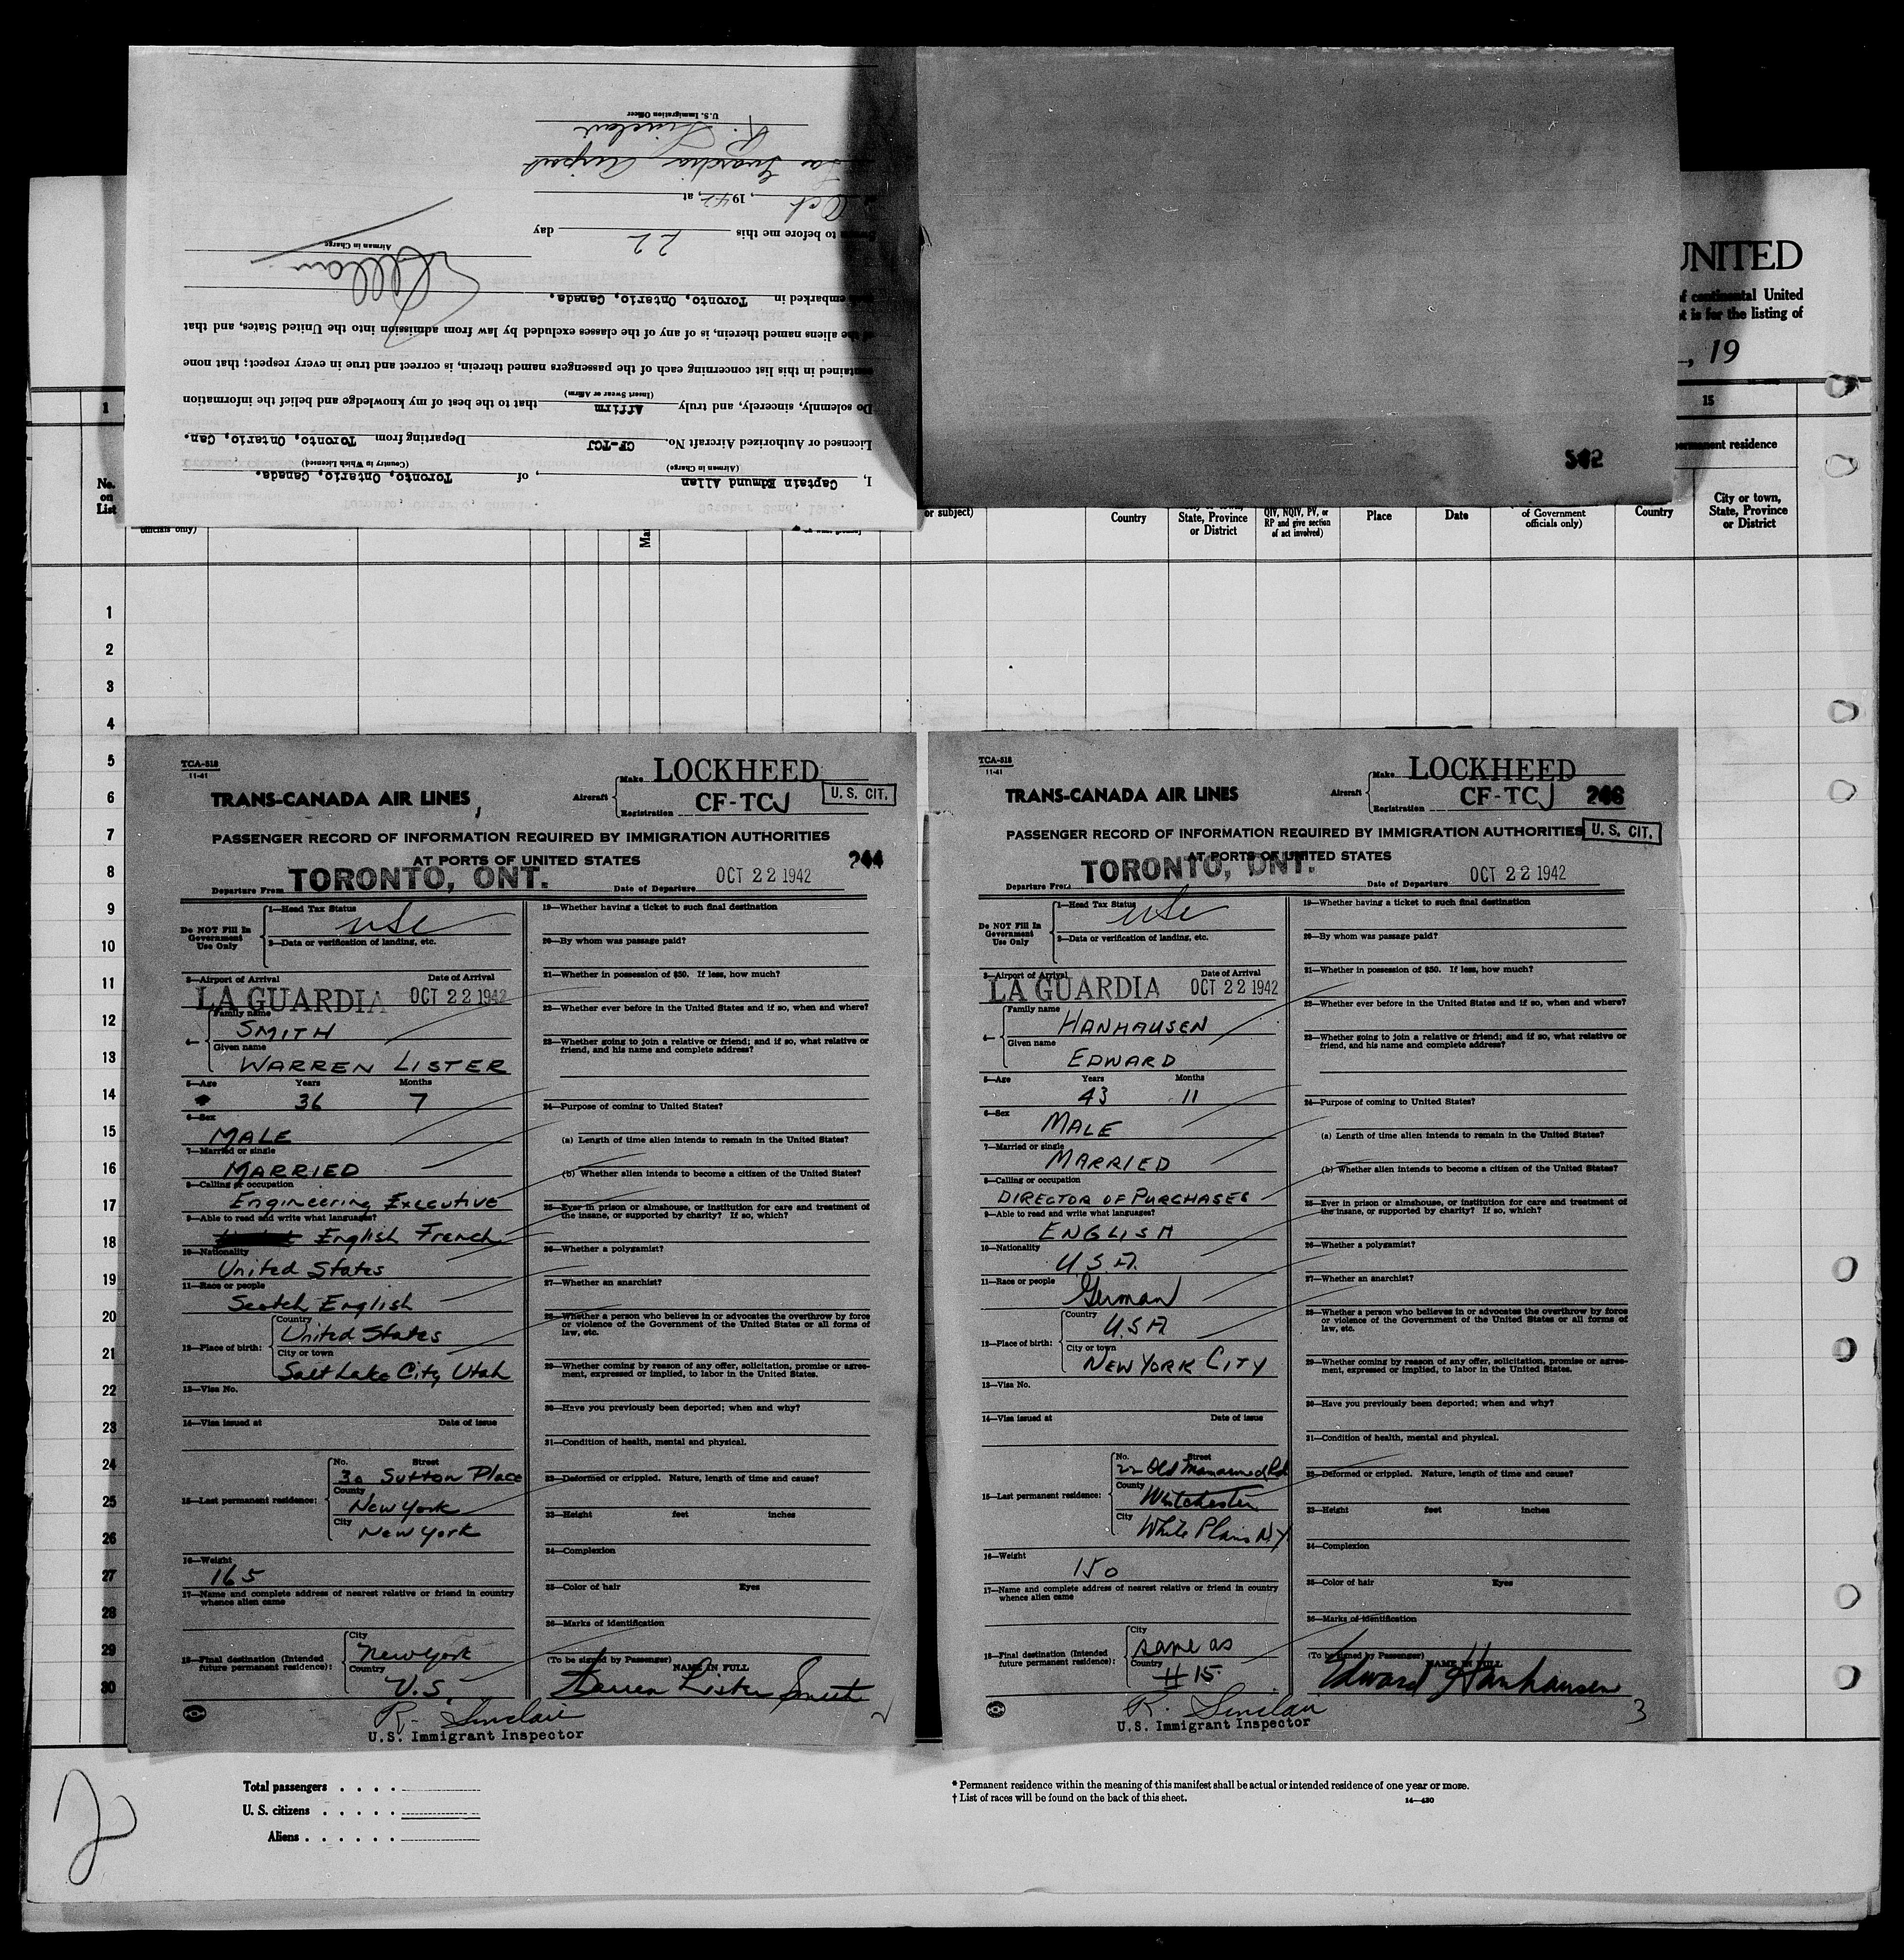 I, Captain Edmund Allan, of Toronto, Ontario, Canada.
(Airman in Charge) (Country in Which Licensed)
Licensed or Authorized Aircraft No. CF-TCJ Departing from Toronto, Ontario, Can.
Do solemnly, sincerely, and truly Affirm that to the best of my knowledge and belief the information
(Insert Swear or Affirm)
contained in this list concerning each of the passengers named therein, is correct and true in every respect; that none
of the aliens named therein, is of any of the classes excluded by law from admission into the United States, and that
embarked in Toronto, Ontario, Canada.
Airman in Charge
to before me this 22 day
Oct, 1942, at
La Guardia Airport
R. Sinclair
U. S. Immigration Officer
542
UNITED
of continental United
is for the listing of
, 19
1
15
permanent residence
No.
on
List
officials only)
or subject)
Country
State, Province
or District
QIV, NQIV, PV, or
RP and give section
of act involved)
Place
Date
of Government
officials only)
Country
City or town,
State, Province
or District
1
2
3
4
5
6
7
8
9
10
11
12
13
14
15
16
17
18
19
20
21
22
23
24
25
26
27
28
29
30
TCA-518
11-41
TRANS-CANADA AIR LINES
Aircraft
Make LOCKHEED
Registration CF-TCJ
U. S. CIT.
PASSENGER RECORD OF INFORMATION REQUIRED BY IMMIGRATION AUTHORITIES
AT PORTS OF UNITED STATES
244
Departure From TORONTO, ONT. Date of Departure OCT 22 1942
Do NOT Fill In
Government
Use Only
1—Head Tax Status
USC
2—Data or verification of landing, etc.
3—Airport of Arrival Date of Arrival
LA GUARDIA OCT 22 1942
4— Family name
SMITH
Given name
WARREN LISTER
5—Age Years Months
36 7
6—Sex
MALE
7—Married or single
MARRIED
8—Calling or occupation
Engineering Executive
9—Able to read and write what languages?
English French
10—Nationality
United States
11—Race or people
Scotch English
12—Place of birth:
Country
United States
City or town
Salt Lake City Utah
13—Visa No.
14—Visa issued at Date of issue
15—Last permanent residence:
No. Street
30 Sutton Place
County
New York
City
New York
16—Weight
165
17—Name and complete address of nearest relative or friend in country
whence alien came
18—Final destination (Intended
future permanent residence):
City
New York
Country
U.S.
19—Whether having a ticket to such final destination
20—By whom was passage paid?
21—Whether in possession of $50. If less, how much?
22—Whether ever before in the United States and if so, when and where?
23—Whether going to join a relative or friend; and if so, what relative or
friend, and his name and complete address?
24—Purpose of coming to United States?
(a) Length of time alien intends to remain in the United States?
(b) Whether alien intends to become a citizen of the United States?
25—Ever in prison or almshouse, or institution for care and treatment of
the insane, or supported by charity? If so, which?
26—Whether a polygamist?
27—Whether an anarchist?
28—Whether a person who believes in or advocates the overthrow by force
or violence of the Government of the United States or all forms of
law, etc.
29—Whether coming by reason of any offer, solicitation, promise or agree-
ment, expressed or implied, to labor in the United States.
30—Have you previously been deported; when and why?
31—Condition of health, mental and physical.
32—Deformed or crippled. Nature, length of time and cause?
33—Height feet inches
34—Complexion
35—Color of hair Eyes
36—Marks of identification
(To be signed by Passenger)
NAME IN FULL
Warren Lister Smith
R. Sinclair
U.S. Immigrant Inspector
2
TCA-518
11-41
TRANS-CANADA AIR LINES
Aircraft
Make LOCKHEED
Registration CF-TCJ
246
PASSENGER RECORD OF INFORMATION REQUIRED BY IMMIGRATION AUTHORITIES
U. S. CIT.
AT PORTS OF UNITED STATES
Departure From TORONTO, ONT. Date of Departure OCT 22 1942
Do NOT Fill In
Government
Use Only
1—Head Tax Status
USC
2—Data or verification of landing, etc.
3—Airport of Arrival Date of Arrival
LA GUARDIA OCT 22 1942
4— Family name
HANHAUSEN
Given name
EDWARD
5—Age Years Months
43 11
6—Sex
MALE
7—Married or single
MARRIED
8—Calling or occupation
DIRECTOR OF PURCHASES
9—Able to read and write what languages?
ENGLISH
10—Nationality
U.S.A.
11—Race or people
German
12—Place of birth:
Country
USA
City or town
NEW YORK CITY
13—Visa No.
14—Visa issued at Date of issue
15—Last permanent residence:
No. Street
22 Old Rd
County
Westchester
City
White Plains N.Y.
16—Weight
150
17—Name and complete address of nearest relative or friend in country
whence alien came
18—Final destination (Intended
future permanent residence):
City
same as
Country
# 15
19—Whether having a ticket to such final destination
20—By whom was passage paid?
21—Whether in possession of $50. If less, how much?
22—Whether ever before in the United States and if so, when and where?
23—Whether going to join a relative or friend; and if so, what relative or
friend, and his name and complete address?
24—Purpose of coming to United States?
(a) Length of time alien intends to remain in the United States?
(b) Whether alien intends to become a citizen of the United States?
25—Ever in prison or almshouse, or institution for care and treatment of
the insane, or supported by charity? If so, which?
26—Whether a polygamist?
27—Whether an anarchist?
28—Whether a person who believes in or advocates the overthrow by force
or violence of the Government of the United States or all forms of
law, etc.
29—Whether coming by reason of any offer, solicitation, promise or agree-
ment, expressed or implied, to labor in the United States.
30—Have you previously been deported; when and why?
31—Condition of health, mental and physical.
32—Deformed or crippled. Nature, length of time and cause?
33—Height feet inches
34—Complexion
35—Color of hair Eyes
36—Marks of identification
(To be signed by Passenger)
NAME IN FULL
Edward Hanhausen
R. Sinclair
U.S. Immigrant Inspector
3
Total passengers . . . .
U. S. citizens . . . . .
Aliens . . . . . .
* Permanent residence within the meaning of this manifest shall be actual or intended residence of one year or more.
† List of races will be found on the back of this sheet.
14—430